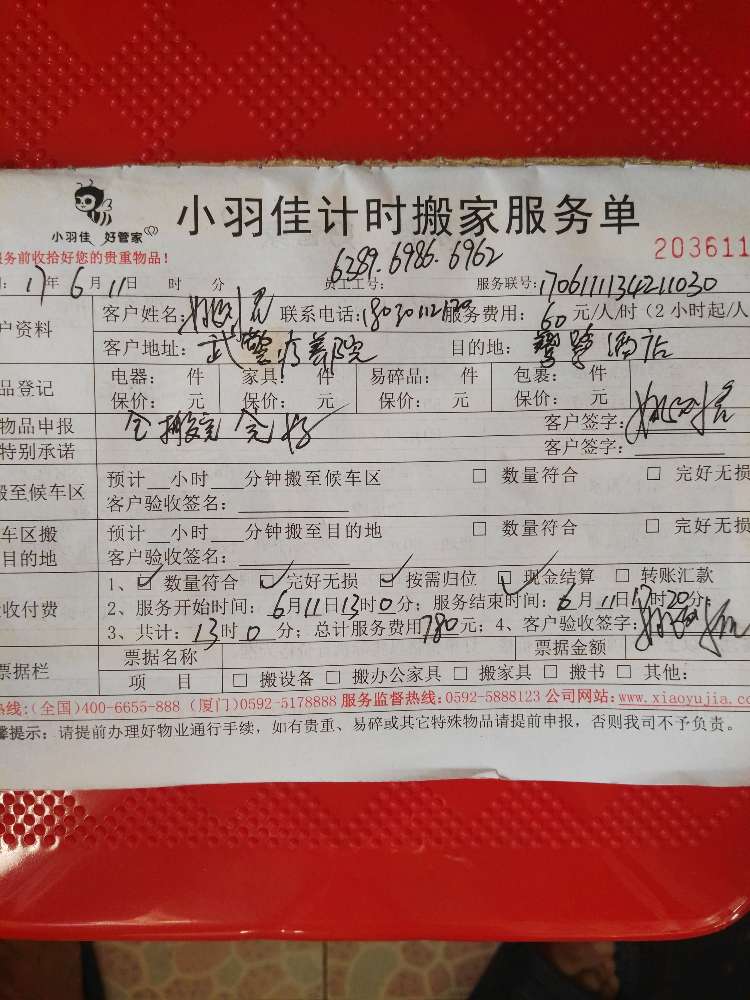 小羽佳 好管家
小羽佳计时搬家服务单
务前收拾好您的贵重物品！
6389.6986.6962
203611
17年6月11日 时 分 员工工号： 服务联号：1706111134211030
户资料
客户姓名： 联系电话： 服务费用：60元/人/时（2小时起/人
客户地址：武警疗养院 目的地： 酒店
品登记
电器： 件 家具： 件 易碎品： 件 包裹： 件
保价： 元 保价： 元 保价： 元 保价： 元
物品申报 全搬完 完好 客户签字：
特别承诺 客户签字：
搬至候车区
预计__小时__分钟搬至候车区 □ 数量符合 □ 完好无损
客户验收签名：
车区搬
目的地
预计__小时__分钟搬至目的地 □ 数量符合 □ 完好无损
客户验收签名：
收付费
1、☑ 数量符合 ☑ 完好无损 ☑ 按需归位 ☑ 现金结算 □ 转账汇款
2、服务开始时间：6月11日13时0分；服务结束时间：6月11日17时20分；
3、共计：13时0分；总计服务费用780元；4、客户验收签字：
票据栏
票据名称 票据金额
项 目 □ 搬设备 □ 搬办公家具 □ 搬家具 □ 搬书 □ 其他：
热线：(全国)400-6655-888 (厦门)0592-5178888 服务监督热线：0592-5888123 公司网站：www.xiaoyujia.co
馨提示：请提前办理好物业通行手续，如有贵重、易碎或其它特殊物品请提前申报，否则我司不予负责。